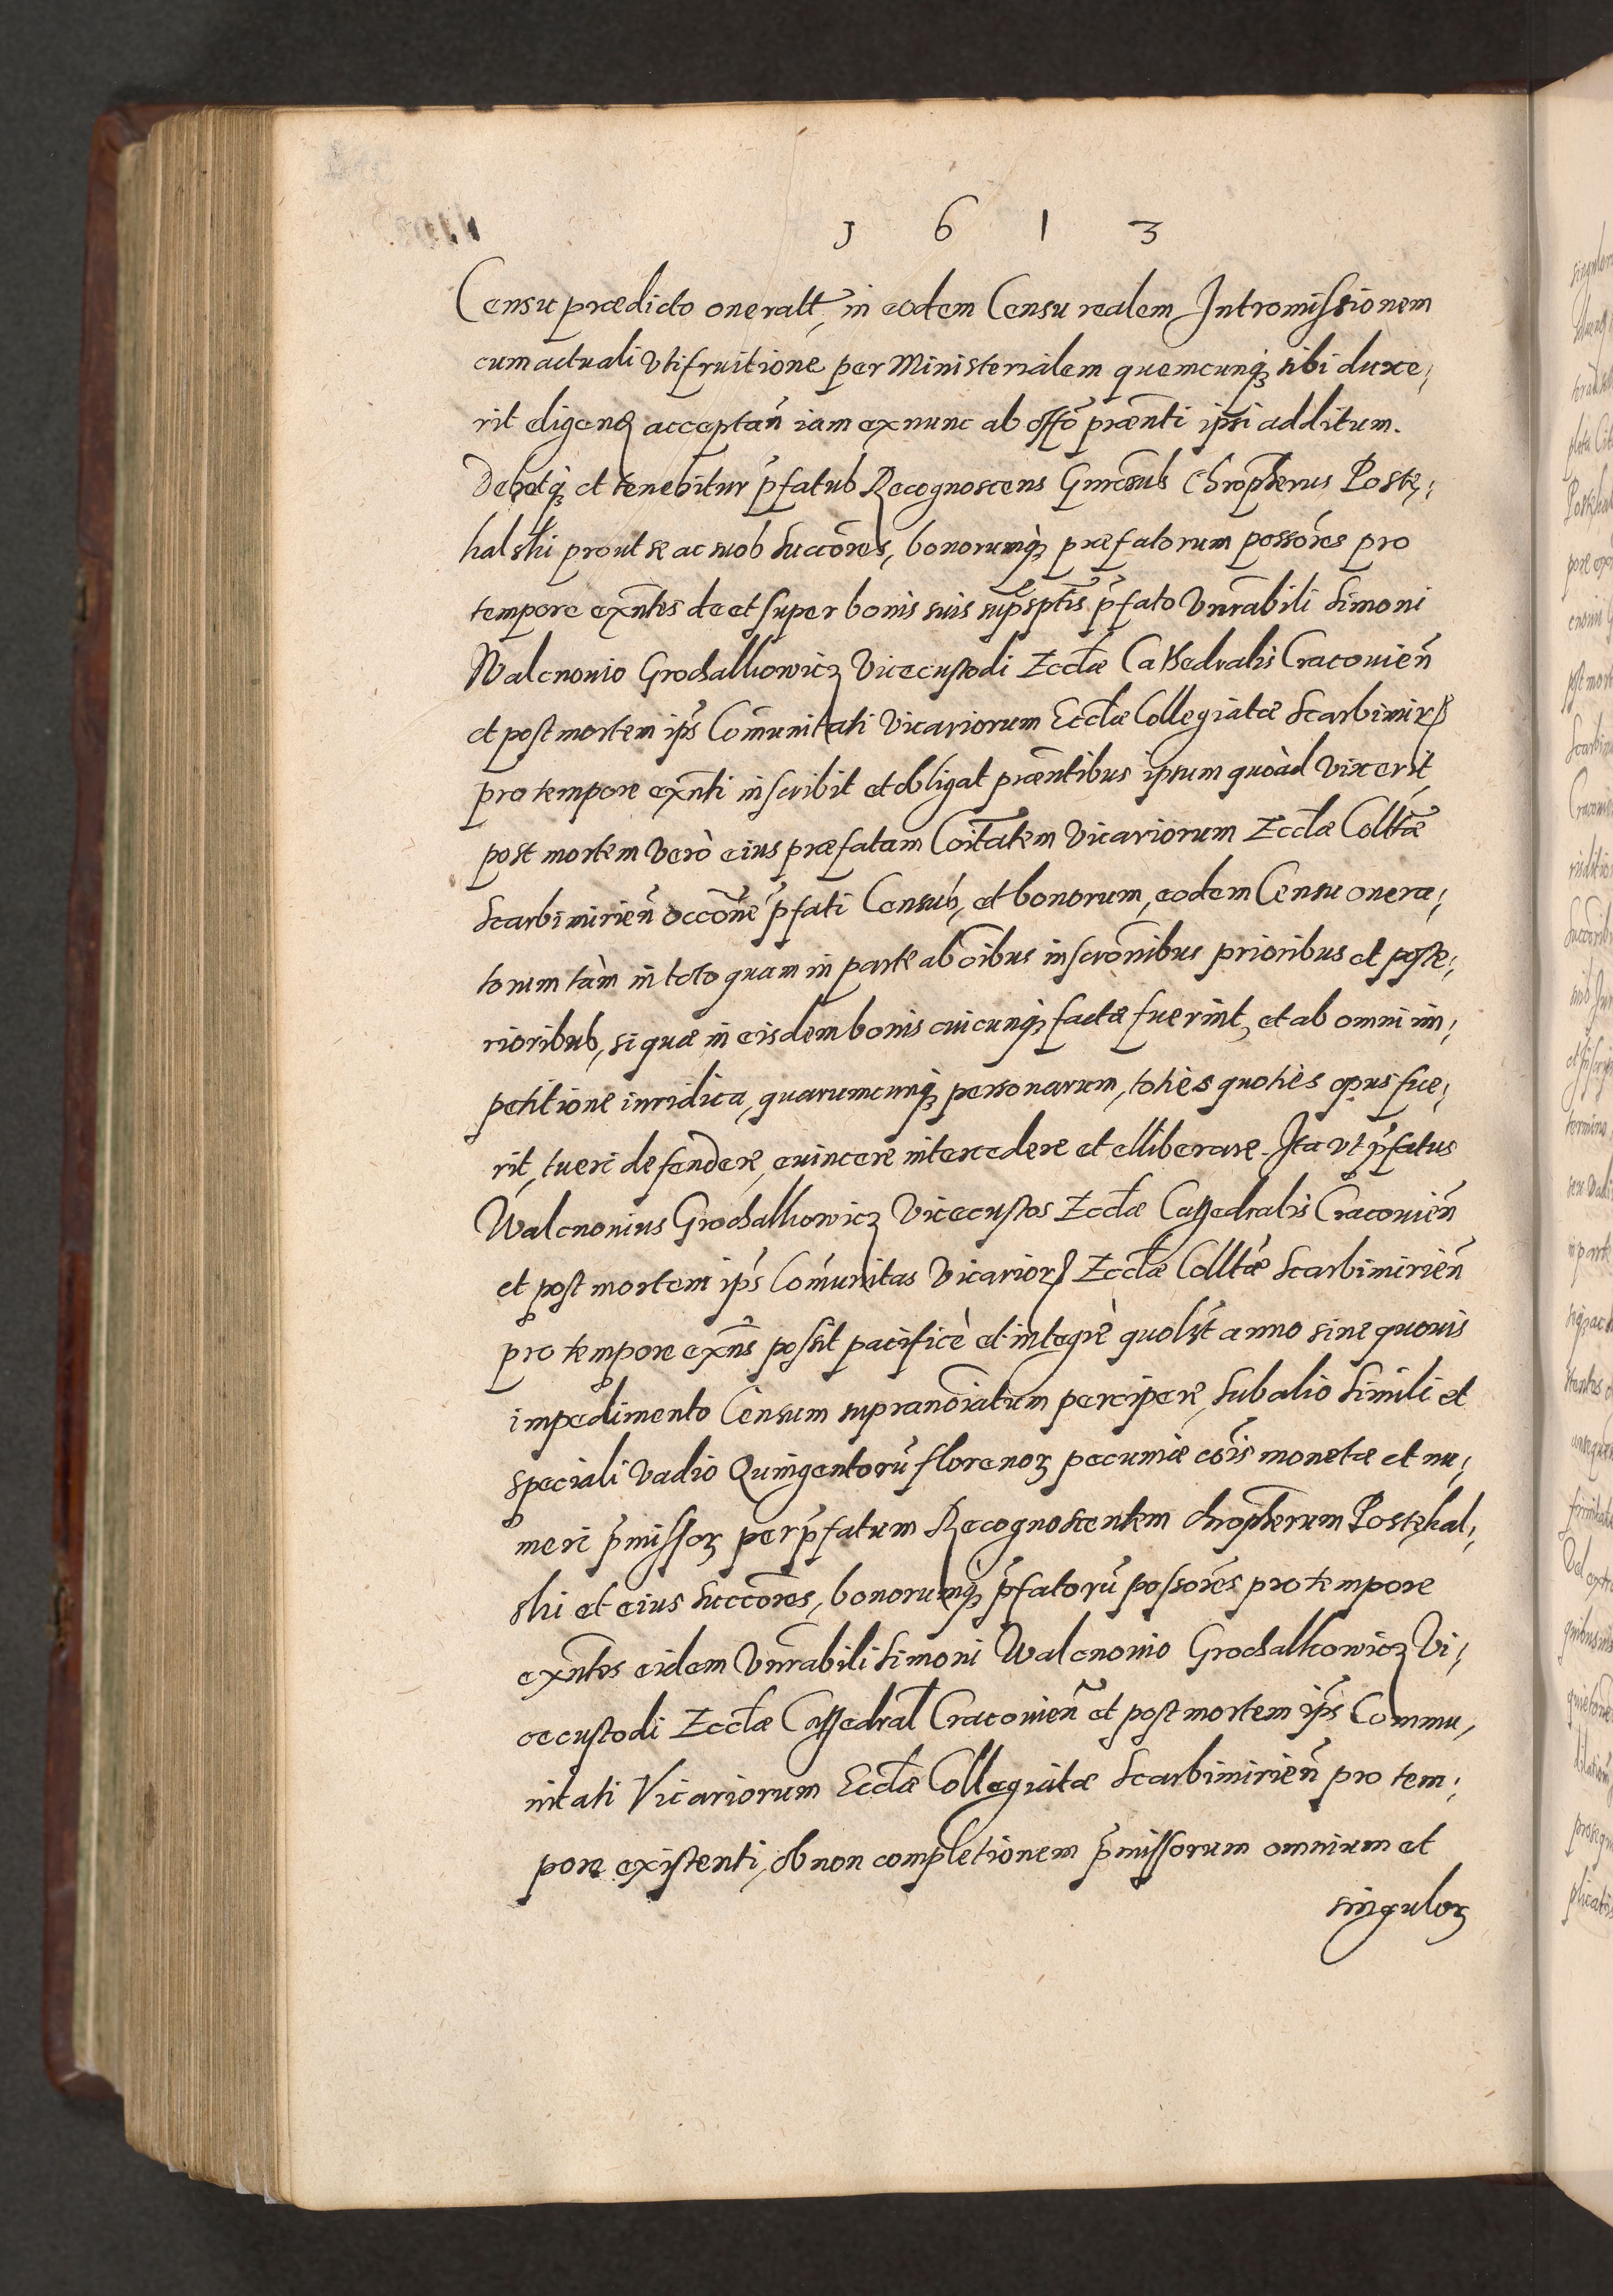 1 6 1 3
Censu prædicto oneratt, in eodem Censu realem Intromissionem
cum actuali Vtifruitione per Ministerialem quemcunq3 sibi duxe,
rit eligen̄ acceptan̄ iam ex nunc ab offō præn̄ti ipsi additum.
Debetq3 et tenebitur p̄fatus Recognoscens Gn̄rosus Chrop̄herus Poste,
halski prout se ac suos Succōres, bonorumq3 præfatorum possōres pro
tempore exn̄tes de et super bonis suis sup̄sptis p̄fato Vn̄rabili Simoni
Walcnonio Grochalkowicz Vicecustodi Ecclæ Cathedralis Cracouien̄
et post mortem ip̄s Com̄unitati Vicariorum Ecclæ Collegiatæ Scarbimir
pro tempore exn̄ti inscribit et obligat præn̄tibus ipsum quoàd vixerit
post mortem verò eius præfatam Coitātem Vicariorum Ecclæ Colltæ
Scarbimirien̄ occōne p̄fati Census, et bonorum, eodem Censu onera,
torum tàm in toto quam in parte ab oībus inscrōnibus prioribus et poste,
rioribus, si quæ in eisdem bonis cuicunq3 factæ fuerint, et ab omni im,
petitione iuridica, quarumcunq3 personarum, totiès quotiès opus fue,
rit, tueri defendere, euincere intercedere et elliberare. Ita vt p̄fatus
Walcnonius Grochalkowicz Vicecustos Ecclæ Cathedralis Cracouien̄
et post mortem ip̄s Com̄unitas Vicarior Ecclæ Colltæ Scarbimirien̄
pro tempore exn̄s possit pacificè et integrè quolȳt anno sine quouis
impedimento Censum supranoīatum percipere, Sub alio Simili et
speciali Vadio Quingentorū florenor3 pecuniæ cōis monetæ et nu,
meri p̄missor3 per p̄fatum Recognoscentem Chrop̄herum Postehal,
ski et eius Succōres, bonorumq3 p̄fatorū possōres pro tempore
exn̄tes eidem Vn̄rabili Simoni Walcnonio Grochalkowicz Vi,
cecustodi Ecclæ Cathedral Cracouien̄ et post mortem ip̄s Commu,
nitati Vicariorum Ecclæ Collegiatæ Scarbimirien̄ pro tem,
pore existenti, ob non completionem p̄missorum omnium et
singulor3